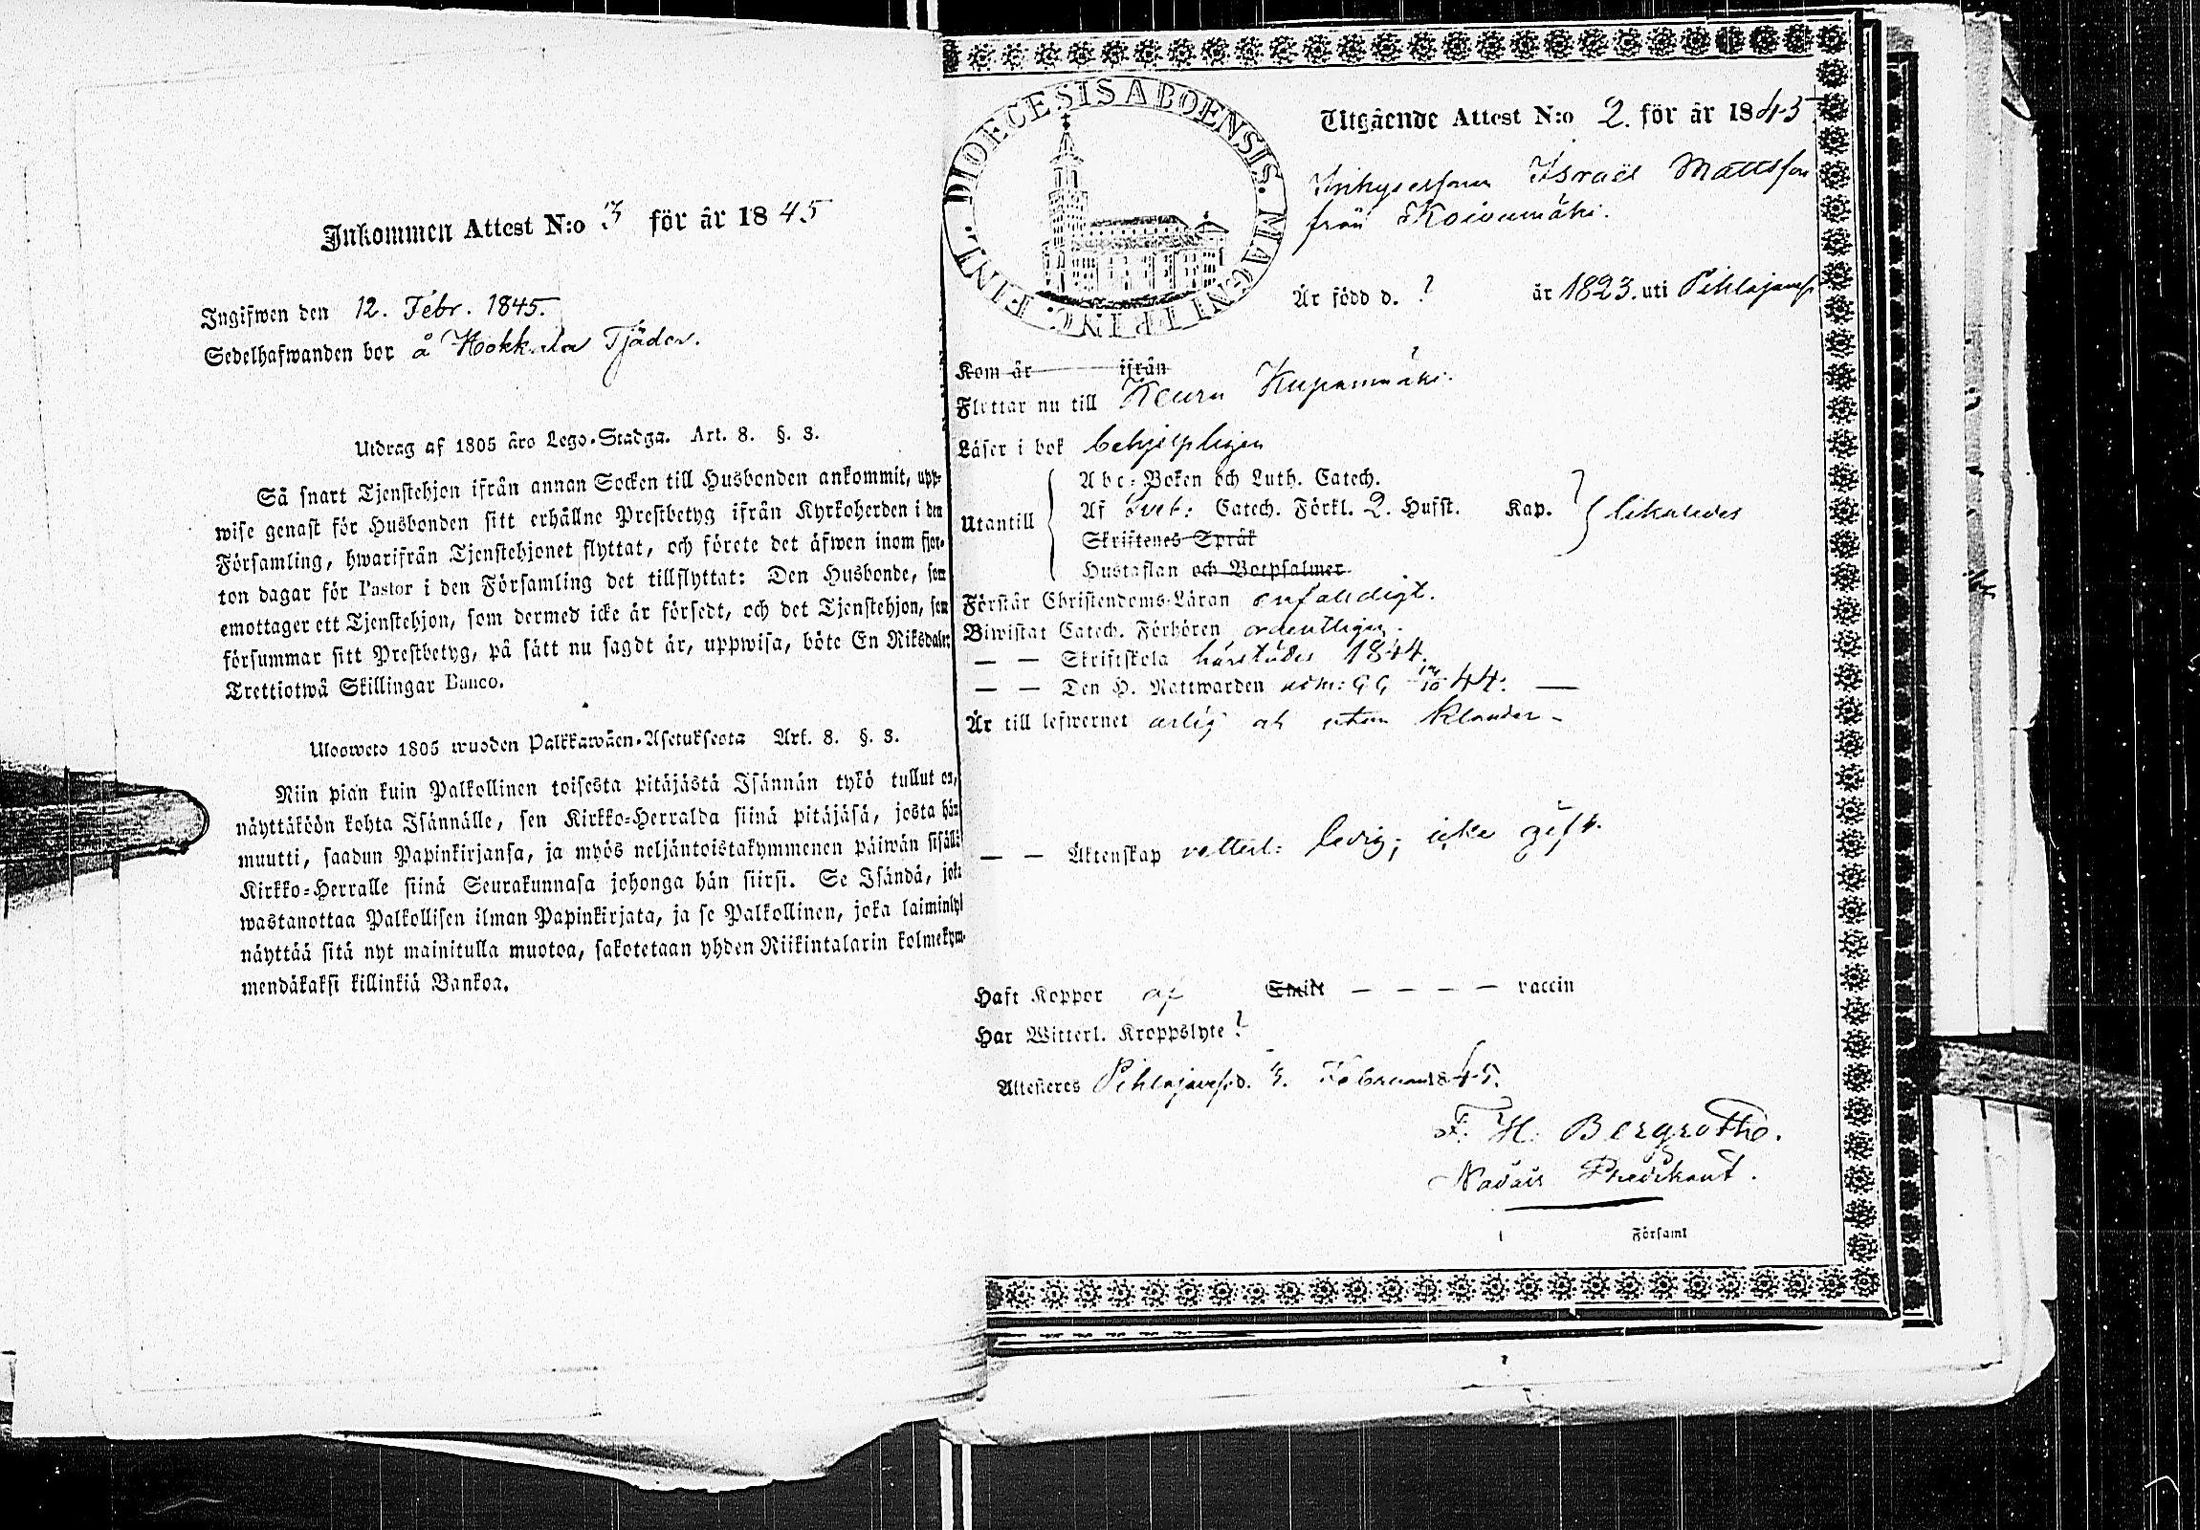 Inkommen Attest N:o 3 för år 1845
Ingifwen den 12. Febr. 1845.
Sedelhafwanden bor å Hokkala Tjäder.
Utdrag af 1805 års Lego-Stadga. Art. 8. §. 3.
Så snart Tjenstehjon ifrån annan Socken till Husbonden ankommit, upp-
wise genast för Husbonden sitt erhållne Prestbetyg ifrån Kyrkoherden i den
Församling, hwarifrån Tjenstehjonet flyttat, och förete det äfwen inom fjor-
ton dagar för Pastor i den Församling det tillflyttat: Den Husbonde, som
emottager ett Tjenstehjon, som dermed icke är försedt, och det Tjenstehjon, som
försummar sitt Prestbetyg, på sätt nu sagdt är, uppwisa, böte En Riksdaler
Trettiotwå Skillingar Banco.
Uloswete 1805 wuoden Palkkawäen-Asetuksesta Art. 8. §. 3.
Niin pian kuin Palkollinen toisesta pitäjästä Isännän tykö tullut on,
näyttäköön kohta Isännälle, sen Kirkko-Herralda siinä pitäjäsä, josta hän
muutti, saadun Papinkirjansa, ja myös neljäntoistakymmenen päiwän sisällä
Kirkko-Herralle siinä Seurakunnasa johonga hän siirsi. Se Isändä, joka
wastanottaa Palkollisen ilman Papinkirjata, ja se Palkollinen, joka laiminlyö
näyttää sitä nyt mainitulla muotoa, sakotetaan yhden Riikintalarin kolmekym-
mendäkaksi killinkiä Bankoa.
DIOECESIS ABOENSIS. MAGNI PRINC. FINL.
Utgående Attest N:o 2. för år 1845
Israël Mattsson
från Koivumäki.
Är född d. ? år 1823. uti Pihlajavesi
Kom år ifrån
Flyttar nu till Keuru Kuparimäki.
Läser i bok behjelpligen
Utantill
Abc-Boken och Luth. Catech.
Af Sveb: Catech. Förkl. 2. Hufst. Kap. ? likaledes
Skriftenes Språk
Hustaflan och Botpsalmer
Förstår Christendoms-Läran enfaldigt.
Biwistat Catech. Förhören ordentligen.
— — Skriftskola härstädes 1844.
— — Den H. Nattwarden 44. —
Är till lefwernet ärlig och utan klander -
— — Äktenskap vetterl: ledig; icke gift.
Haft Koppor af Smitt — — — — vaccin
Har Witterl. Kroppslyte ?
Attesteres Pihlajavesi d. 3. Februari 1845.
F. H. Bergroth.
Predikant.
Församl